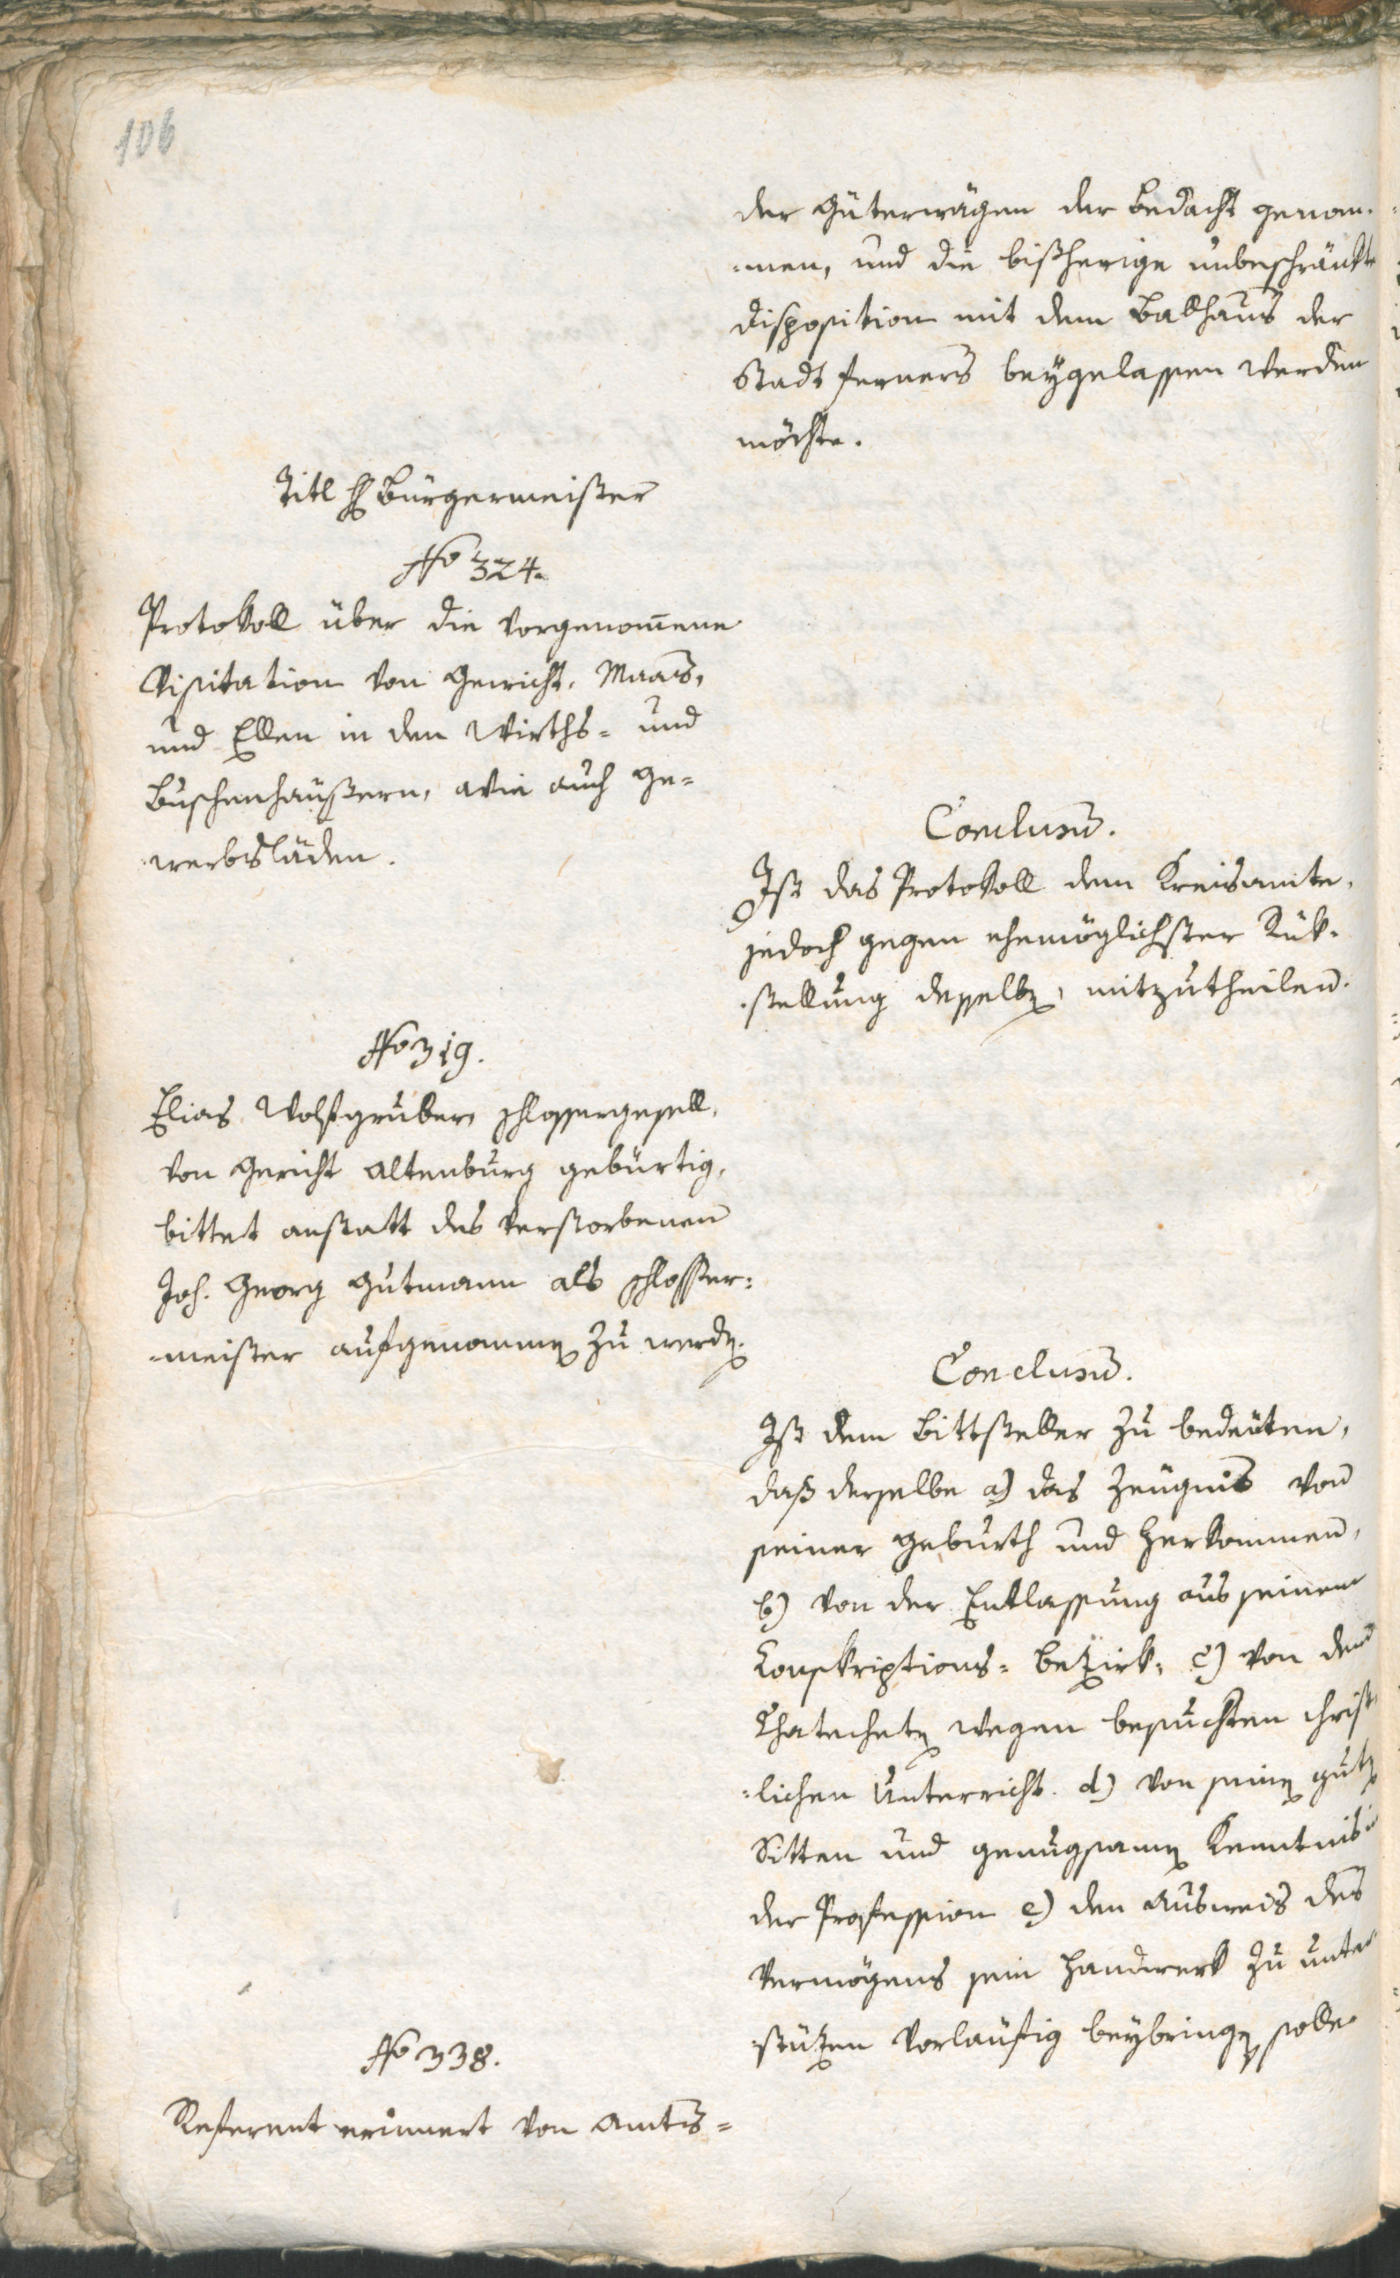 106
der Güterwägen der Bedacht genom¬
¬men, und die bißherige unbeschränkte
Disposition mit dem Ballhauß der
Stadt ferners beygelassen werden
möchte.
Titl H Bürgermeister
No 324.
Protokoll über die vorgenom̅ene
Visitation von Gewicht, Maas,
und Ellen in den Wirths= und
Buschenhäußern, wie auch Ge=
werbsläden.
Conclusum.
Ist das Protokoll dem Kreisamte,
jedoch gegen ehemöglichster Rük¬
¬stellung desselben, mitzutheilen.
No 319.
Elias Wohlgruber Schlossergesell,
von Gericht Altenburg gebürtig,
bittet anstatt des verstorbenen
Joh. Georg Gutmann als Schlosser=
¬meister aufgenommen zu werden.
Conclusum.
Ist dem Bittsteller zu bedeuten,
daß derselbe a) das Zeugnis von
seiner Geburth und Herkommen,
b) von der Entlassung aus seinem
Conskriptions= Bezirk, c) von dem
Chatecheten wegen besuchten christ
=lichen Unterricht. d) von seinen guten
Sitten und genugsamen Kenntnis
der Profession e) den Ausweis des
Vermögens sein Handwerk zu unter
¬stüzen vorläufig beybringen solle
No 338.
Referent erinnert von Amts=